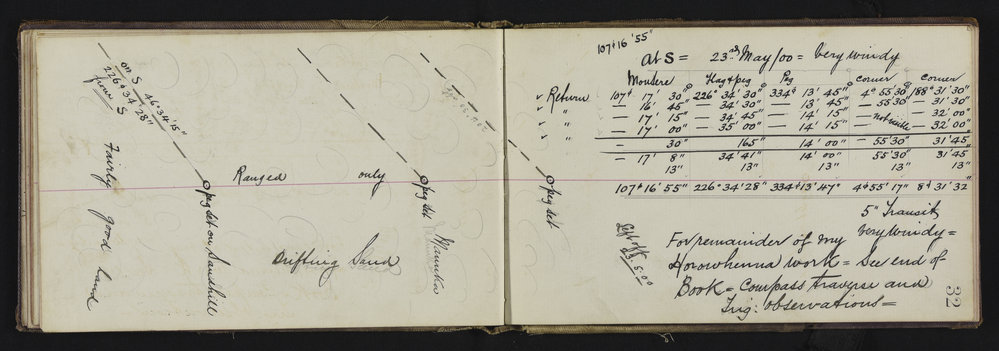 on S 46° 34' 15"
from S
226° 34' 28"
Fairly good land
peg set on Sandhill
Ranged only
Drifting Sand
peg set
peg set
107° 16' 55"
at S = 23rd May/00 = Very windy
Flag & peg Peg corner corner
✓ Return 107° 17' 30" 226° 34' 30" 334° 13' 45" 4° 55' 30" 188° 31' 30"
✓ " — 16' 45" — 34' 30" — 13' 45" — 55' 30" — 31' 30"
✓ " — 17' 15" — 34' 45" — 14' 15" — not visible — 32' 00"
✓ " — 17' 00" — 35' 00" — 14' 15" — 32' 00"
— 30" 165" 14' 00" — 55' 30" 31' 45"
— 17' 8" 34' 41" 14' 00" 55' 30" 31' 45"
13" 13" 13" 13" 13"
107° 16' 55" 226° 34' 28" 334° 13' 47" 4° 55' 17" 8° 31' 32"
5" Transit
Very windy =
Left off
23.5.00
For remainder of my
Horowhenua work = See end of
Book = Compass traverse and
Trig: Observations =
32